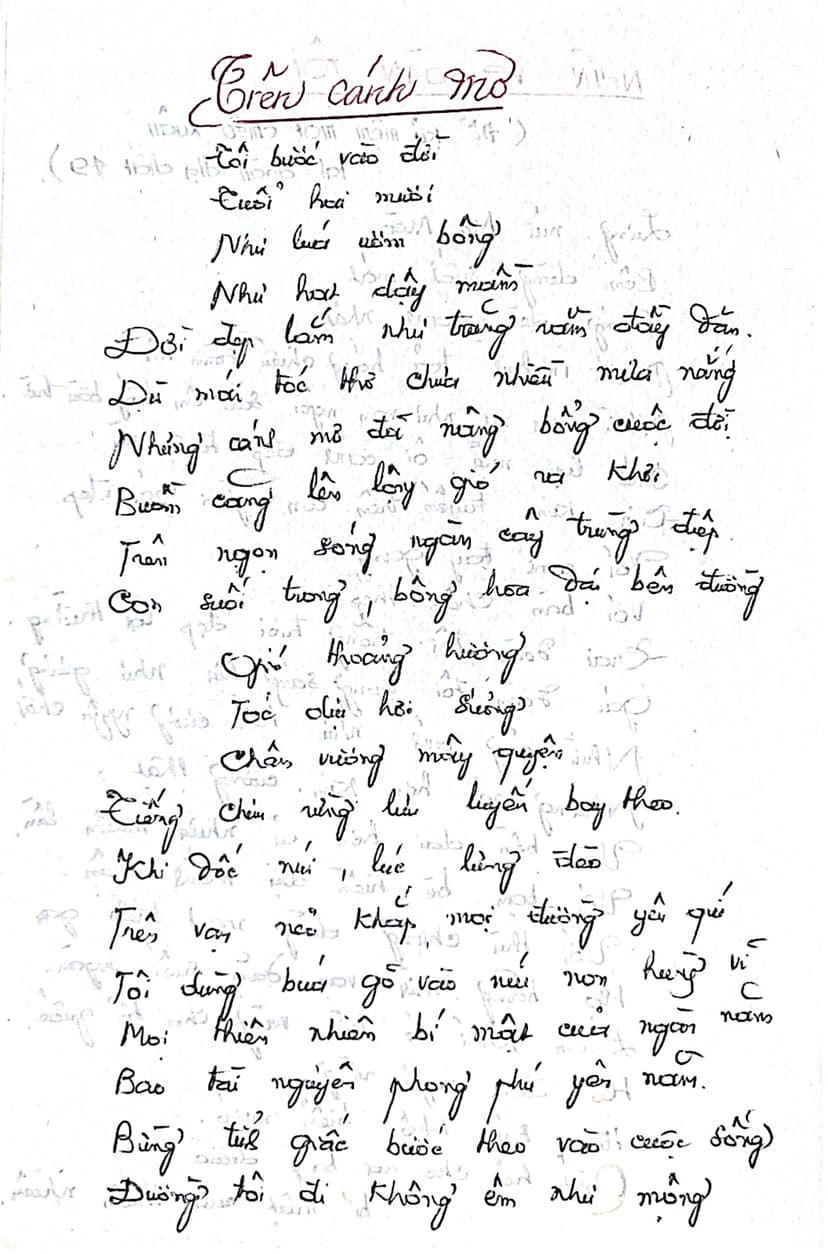 Trên cánh mơ
Tôi bước vào đời
Tuổi hoa mười
Như lúa ươm bông
Như hạt dậy mầm
Đời đẹp lắm như trăng rằm đầy đặn.
Dù mái tóc thơ chưa nhiều mưa nắng
Những cánh mơ đã nâng bổng cuộc đời
Buồm căng lên lộng gió ra khơi
Trên ngọn sóng ngàn cây trùng điệp
Con suối trong, bông hoa dại bên đường
Gió thoảng hương
Tóc dịu hơi sương
Chân vướng mây quyện
Tiếng chim rừng lưu luyến bay theo.
Khi dốc núi, lúc lưng đèo
Trên vạn nẻo khắp mọi đường yêu quí
Tôi dùng búa gõ vào núi non hùng vĩ
Mọi thiên nhiên bí mật của ngàn năm
Bao tài nguyên phong phú yên nằm.
Bừng tỉnh giấc bước theo vào cuộc sống
Đường tôi đi không êm như mộng